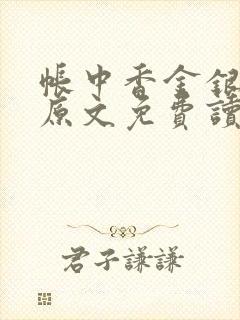 帳中香金銀
原文免費讀
君子謙謙